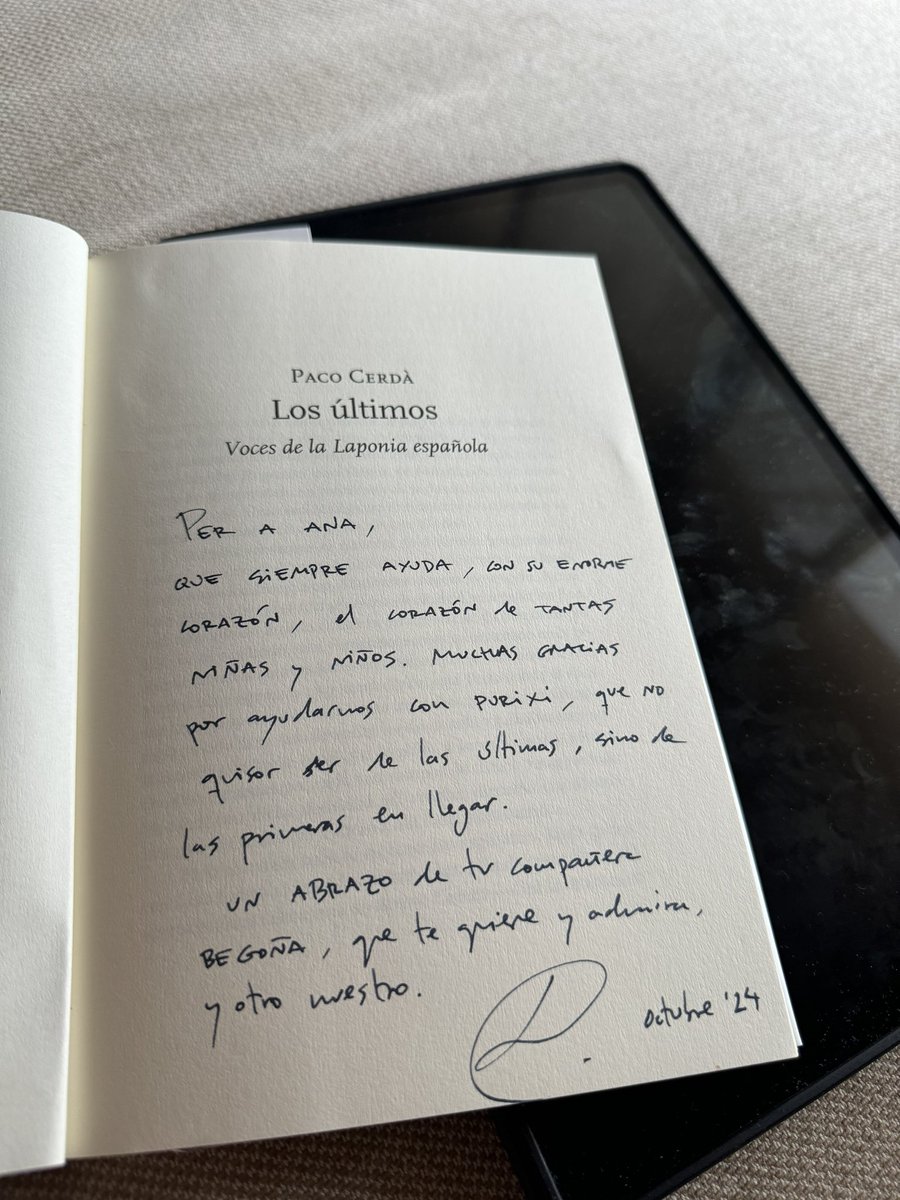 PACO CERDÀ
Los últimos
Voces de la Laponia española
PER A ANA,
QUE SIEMPRE AYUDA, CON SU ENORME
CORAZÓN, el CORAZÓN de TANTAS
NIÑAS y NIÑOS. MUCHAS GRACIAS
por ayudarnos con PURIXI, que NO
quiso ser de las últimas, sino de
las primeras en llegar.
UN ABRAZO de tu compañera
BEGOÑA, que te quiere y admira,
y otro nuestro.
octubre '24